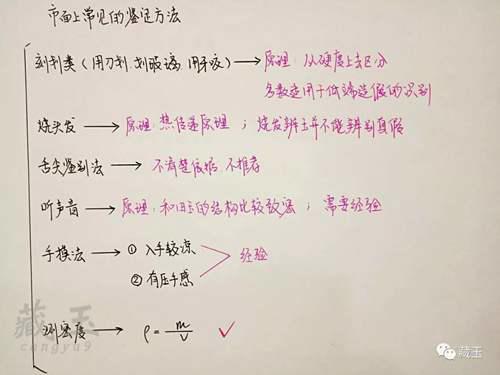 市面上常见的鉴定方法
刻划类（用刀划,划玻璃,用牙咬）→ 原理：从硬度上去区分
多数适用于低端造假的识别
烧头发 → 原理：热传递原理；烧发辨玉并不能辨别真假
舌尖鉴别法 → 不清楚依据,不推荐
听声音 → 原理：和田玉的结构比较致密；需要经验
手摸法 → ① 入手较凉
② 有压手感
经验
测密度 → ρ = m/V ✓
藏玉
cangyu9
藏玉